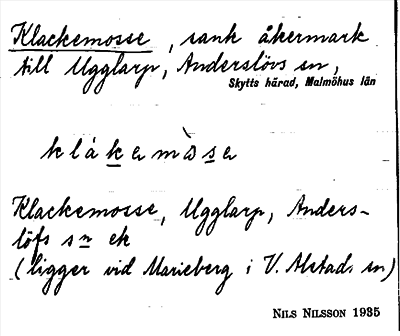 Klackemosse, sank åkermark
till Ugglarp, Anderslövs sn,
Skytts härad, Malmöhus län
klákemòse
Klackemosse, Ugglarp, Anders-
löfs sn ek
(ligger vid Marieberg i V. Alstads sn)
NILS NILSSON 1935